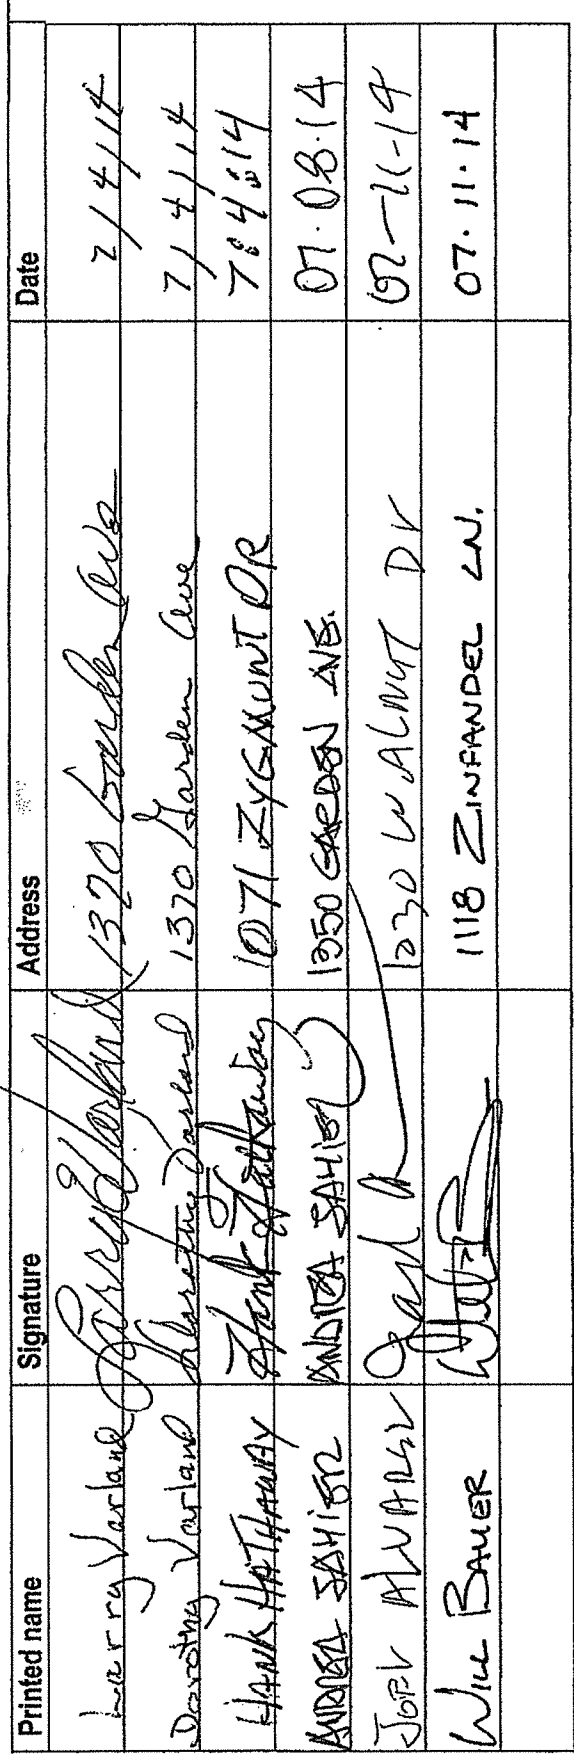 Printed name Signature Address Date
Larry Varland Larry Varland 1370 Garden Ave 7/4/14
Dorothy Varland Dorothy Varland 1370 Garden Ave 7/4/14
HANK HATHAWAY Hank Hathaway 1071 ZYGMUNT DR 7.4.14
ANDREA SAHIER ANDREA SAHIER 1350 GARDEN AVE. 07.08.14
JOEL ALVAREZ 1230 WALNUT DR 07-11-14
WILL BAUER 1118 ZINFANDEL LN. 07.11.14